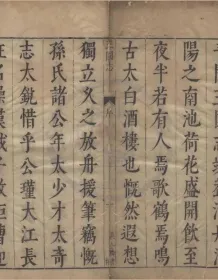 陽之南池荷花盛開飲至
夜半若有人焉歌鶴焉鳴
古太白酒樓也慨然遐想
獨立久之放舟援筆竊慨
孫氏諸公年太少才太奇
志太銳惜乎公瑾大江長
名操漢賊子敬拒曹迎